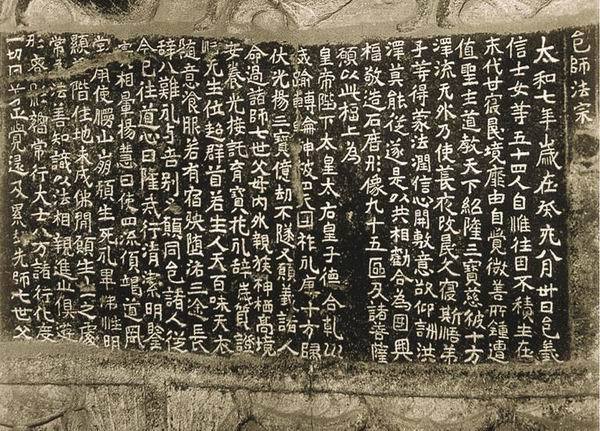 邑師法宗
太和七年歲在癸亥八月卅日邑義
信士女等五十四人自惟往因不積生在
末代甘寢昏境靡由自覺微善所鍾遭
值聖主道教天下紹隆三寶慈被十方
澤流无外乃使長夜改昏久寢斯悟弟
子等得蒙法潤信心開敷意欲仰酬洪
澤莫能從遂是以共相勸合為國興
福敬造石廟形像九十五區及諸菩薩
願以此福上為
皇帝陛下太皇太后皇子德合乾坤
威踰轉輪神被四天國祚永康十方歸
伏光揚三寶億劫不隧又願義諸人
命過諸師七世父母內外親族神栖高境
安養光接託育寶花永辭穢質證
悟无生位超群首若生人天百味天衣
隨意飡服若有宿殃墮洛三途長
辭八難永與苦別又願同邑諸人從
今已往道心日隆戒行清潔明鑒
實相暈揚慧日使四流傾竭道風
堂扇使慢山崩頹生死永畢佛性明
顯登階住地未成佛間願生生之處
常為法善知識以法相親進止俱遊
形容影嚮常行大士八万諸行化度
一切同善正覺逮及累劫先師七世父